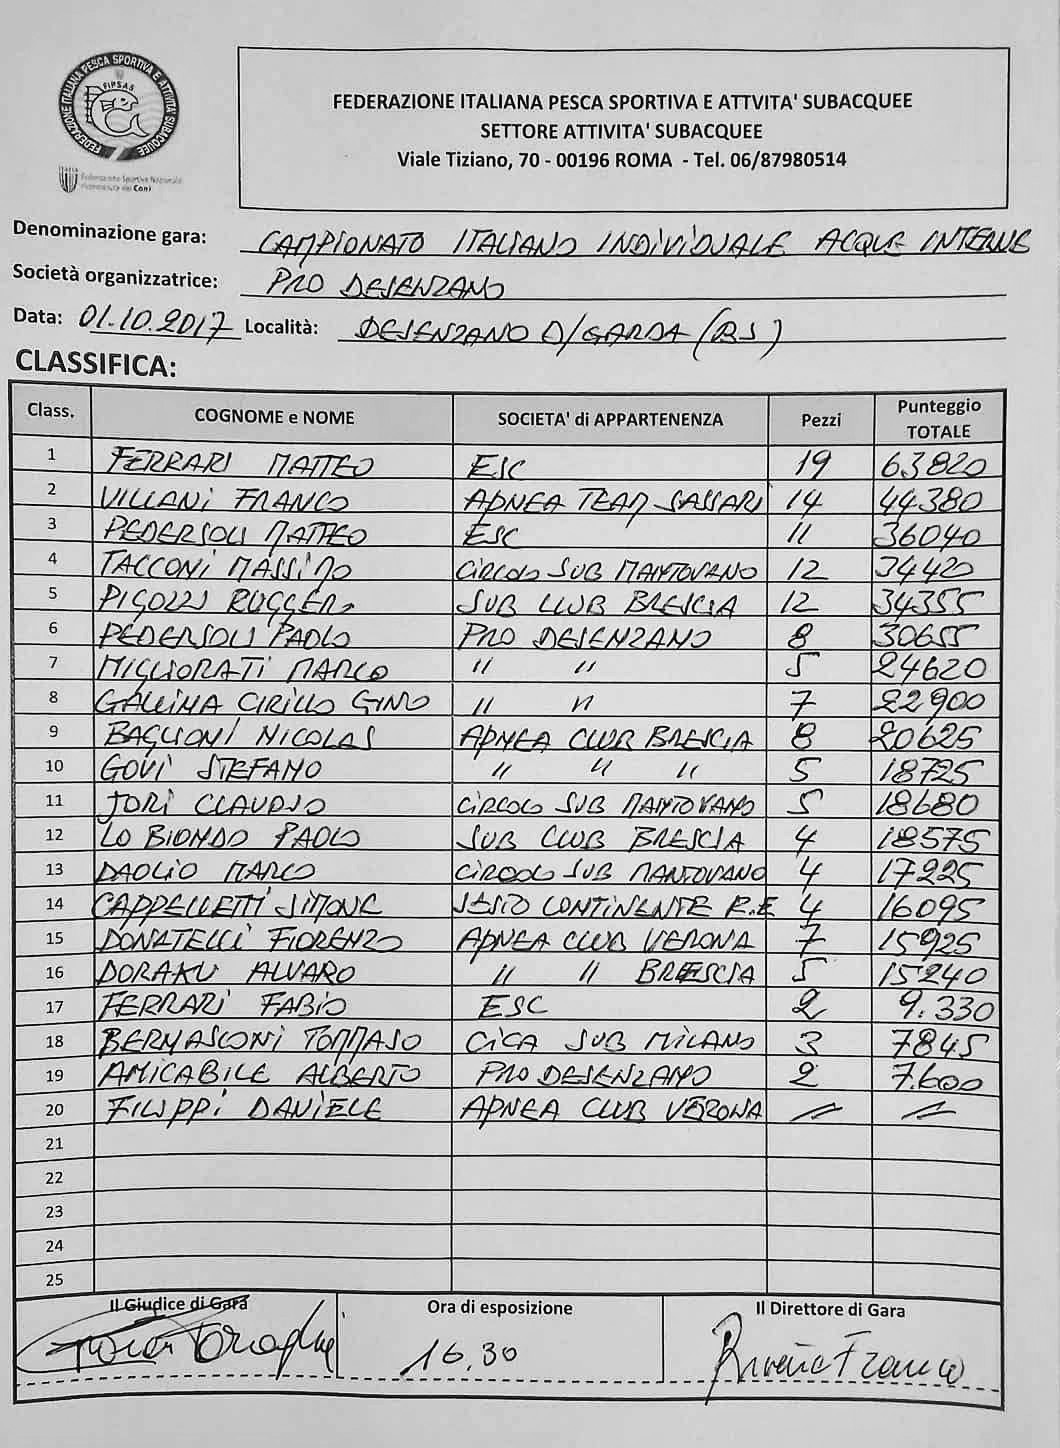 FEDERAZIONE ITALIANA PESCA SPORTIVA E ATTIVITA' SUBACQUEE
FIPSAS
Italia
Federazione Sportiva Nazionale
riconosciuta dal Coni
FEDERAZIONE ITALIANA PESCA SPORTIVA E ATTVITA' SUBACQUEE
SETTORE ATTIVITA' SUBACQUEE
Viale Tiziano, 70 - 00196 ROMA - Tel. 06/87980514
Denominazione gara: CAMPIONATO ITALIANO INDIVIDUALE ACQUE INTERNE
Società organizzatrice: PRO DESENZANO
Data: 01.10.2017 Località: DESENZANO D/GARDA (BS)
CLASSIFICA:
Class. COGNOME e NOME SOCIETA' di APPARTENENZA Pezzi Punteggio TOTALE
1 FERRARI MATTEO ESC 19 63820
2 VILLANI FRANCO APNEA TEAM SASSARI 14 44380
3 PEDERSOLI MATTEO ESC 11 36040
4 TACCONI MASSIMO CIRCOLO SUB MANTOVANO 12 34420
5 PIGOZZI RUGGERO SUB CLUB BRESCIA 12 34355
6 PEDERSOLI PAOLO PRO DESENZANO 8 30655
7 MIGLIORATI MARCO " " 5 24620
8 GALLINA CIRILLO GINO " " 7 22900
9 BAGLIONI NICOLAS APNEA CLUB BRESCIA 8 20625
10 GOVI STEFANO " " " 5 18725
11 JORI CLAUDIO CIRCOLO SUB MANTOVANO 5 18680
12 LO BIONDO PAOLO SUB CLUB BRESCIA 4 18575
13 DAOLIO MARCO CIRCOLO SUB MANTOVANO 4 17225
14 CAPPELLETTI SIMONE SESTO CONTINENTE R.E 4 16095
15 DONATELLI FIORENZO APNEA CLUB VERONA 7 15925
16 DORAKU ALVARO " " BRESCIA 5 15240
17 FERRARI FABIO ESC 2 9.330
18 BERNASCONI TOMMASO CICA SUB MILANO 3 7845
19 AMICABILE ALBERTO PRO DESENZANO 2 7.600
20 FILIPPI DANIELE APNEA CLUB VERONA // //
21
22
23
24
25
Il Giudice di Gara Ora di esposizione Il Direttore di Gara
16,30 Franco